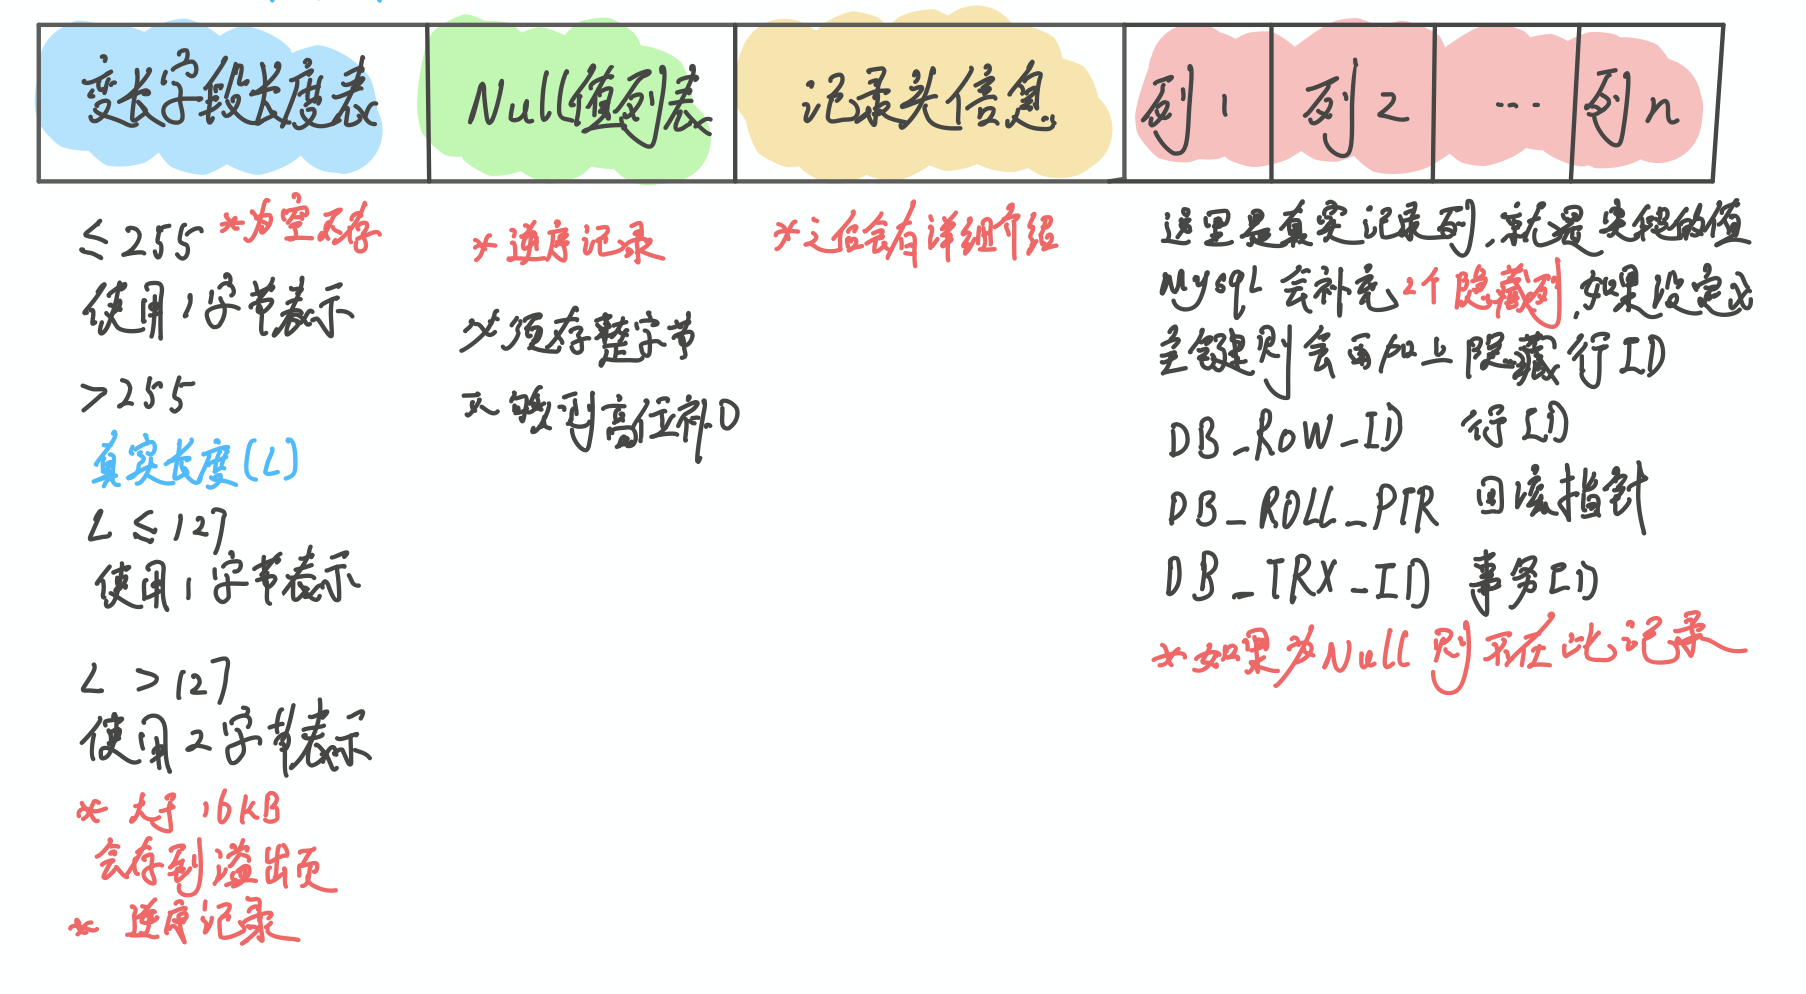 变长字段长度表
Null值列表
记录头信息
列1
列2
...
列n
≤255 *为空不存
使用1字节表示
>255
真实长度(L)
L ≤127
使用1字节表示
L >127
使用2字节表示
* 大于16KB
会存到溢出页
* 逆序记录
* 逆序记录
必须存整字节
不够则高位补0
*之后会有详细介绍
这里是真实记录列,就是实际的值
MySQL会补充2个隐藏列,如果没定义
主键则会再加上隐藏行ID
DB_ROW_ID 行ID
DB_ROLL_PTR 回滚指针
DB_TRX_ID 事务ID
*如果为Null则不在此记录